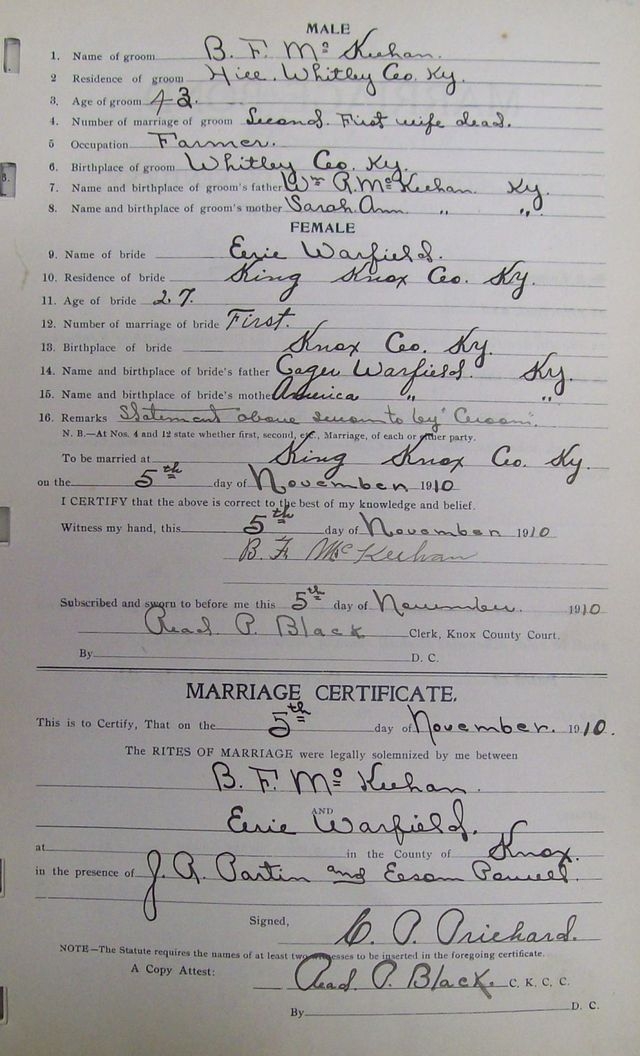 MALE
1. Name of groom B. F. McKeehan.
2 Residence of groom Hill. Whitley Co. Ky.
3. Age of groom 43.
4. Number of marriage of groom Second. First wife dead.
5 Occupation Farmer.
6. Birthplace of groom Whitley Co. Ky.
7. Name and birthplace of groom's father Wm R. McKeehan. Ky.
8. Name and birthplace of groom's mother Sarah Ann " "
FEMALE
9. Name of bride Warfield.
10. Residence of bride King Knox Co. Ky.
11. Age of bride 27.
12. Number of marriage of bride First.
13. Birthplace of bride Knox Co. Ky.
14. Name and birthplace of bride's father Warfield. Ky.
15. Name and birthplace of bride's mother America " "
16. Remarks Statement above sworn to by "Groom".
N. B.—At Nos. 4 and 12 state whether first, second, etc., Marriage, of each or either party.
To be married at King Knox Co. Ky.
on the 5th day of November 1910
I CERTIFY that the above is correct to the best of my knowledge and belief.
Witness my hand, this 5th day of November 1910
B. F. McKeehan
Subscribed and sworn to before me this 5th day of November. 1910
Read P. Black Clerk, Knox County Court.
By D. C.
MARRIAGE CERTIFICATE.
This is to Certify, That on the 5th day of November. 1910.
The RITES OF MARRIAGE were legally solemnized by me between
B. F. McKeehan
AND
Warfield.
at in the County of Knox.
in the presence of J. R. Partin and Powell.
Signed, C. P. Prichard.
NOTE—The Statute requires the names of at least two witnesses to be inserted in the foregoing certificate.
A Copy Attest: Read P. Black. C. K. C. C.
By D. C.